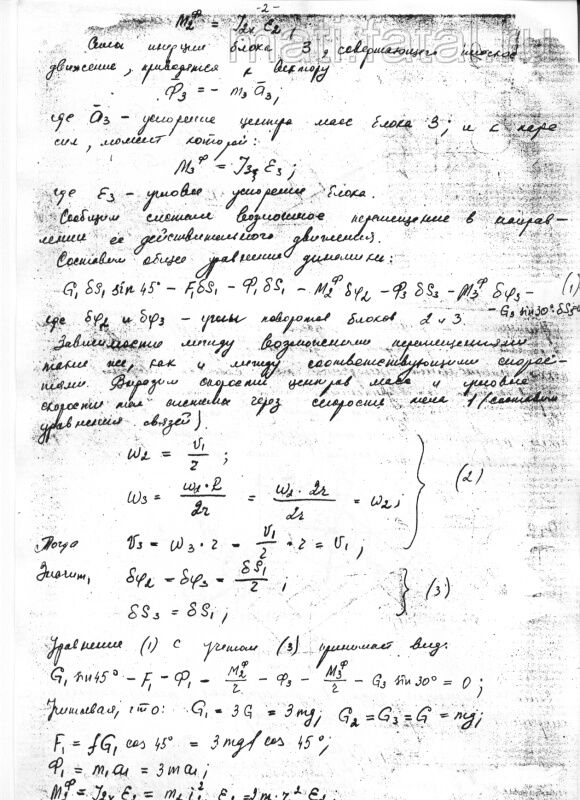 -2-
M₂ᶲ = J₂ₓ ε₂,
Силы инерции блока 3, совершающего плоское
движение, приводятся к вектору
Ф̄₃ = - m₃ ā₃;
где ā₃ - ускорение центра масс блока 3; и к паре
сил, момент которой:
M₃ᶲ = J₃ ε₃;
где ε₃ - угловое ускорение блока.
Сообщим системе возможное перемещение в направ-
лении ее действительного движения.
Составим общее уравнение динамики:
G₁ δS₁ sin 45° - F₁δS₁ - Ф₁ δS₁ - M₂ᶲ δφ₂ - Ф₃ δS₃ - M₃ᶲ δφ₃ - (1)
- G₃ sin 30° δS₃
где δφ₂ и δφ₃ - углы поворотов блоков 2 и 3.
Зависимости между возможными перемещениями
такие же, как и между соответствующими скорос-
тями. Выразим скорости центров масс и угловые
скорости тел системы через скорость тела 1 (составим
уравнения связей).
ω₂ = v₁/r ;
ω₃ = ω₂·R/2r = ω₂·2r/2r = ω₂; (2)
Тогда v₃ = ω₃·r = v₁/r · r = v₁ ;
Значит, δφ₂ = δφ₃ = δS₁/r ;
δS₃ = δS₁ ; (3)
Уравнение (1) с учетом (3) принимает вид:
G₁ sin 45° - F₁ - Ф₁ - M₂ᶲ/r - Ф₃ - M₃ᶲ/r - G₃ sin 30° = 0 ;
Учитывая, что: G₁ = 3G = 3mg; G₂ = G₃ = G = mg;
F₁ = fG₁ cos 45° = 3mgf cos 45°;
Ф₁ = m₁a₁ = 3ma₁;
mati.fatal.ru